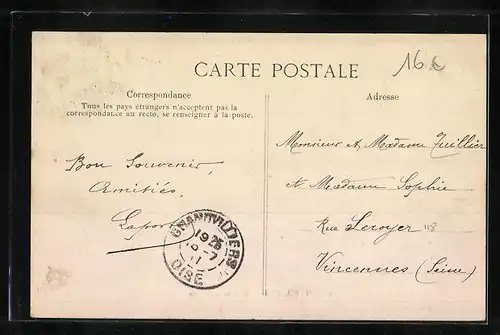 16 €
CARTE POSTALE
Correspondance
Tous les pays étrangers n'acceptent pas la
correspondance au recto, se renseigner à la poste.
Adresse
Bon Souvenir,
Amitiés,
Monsieur et Madame Juillier
et Madame Sophie
Rue Leroyer 118
Vincennes (Seine)
GRANDVILLIERS
19 25
9-7
11
OISE